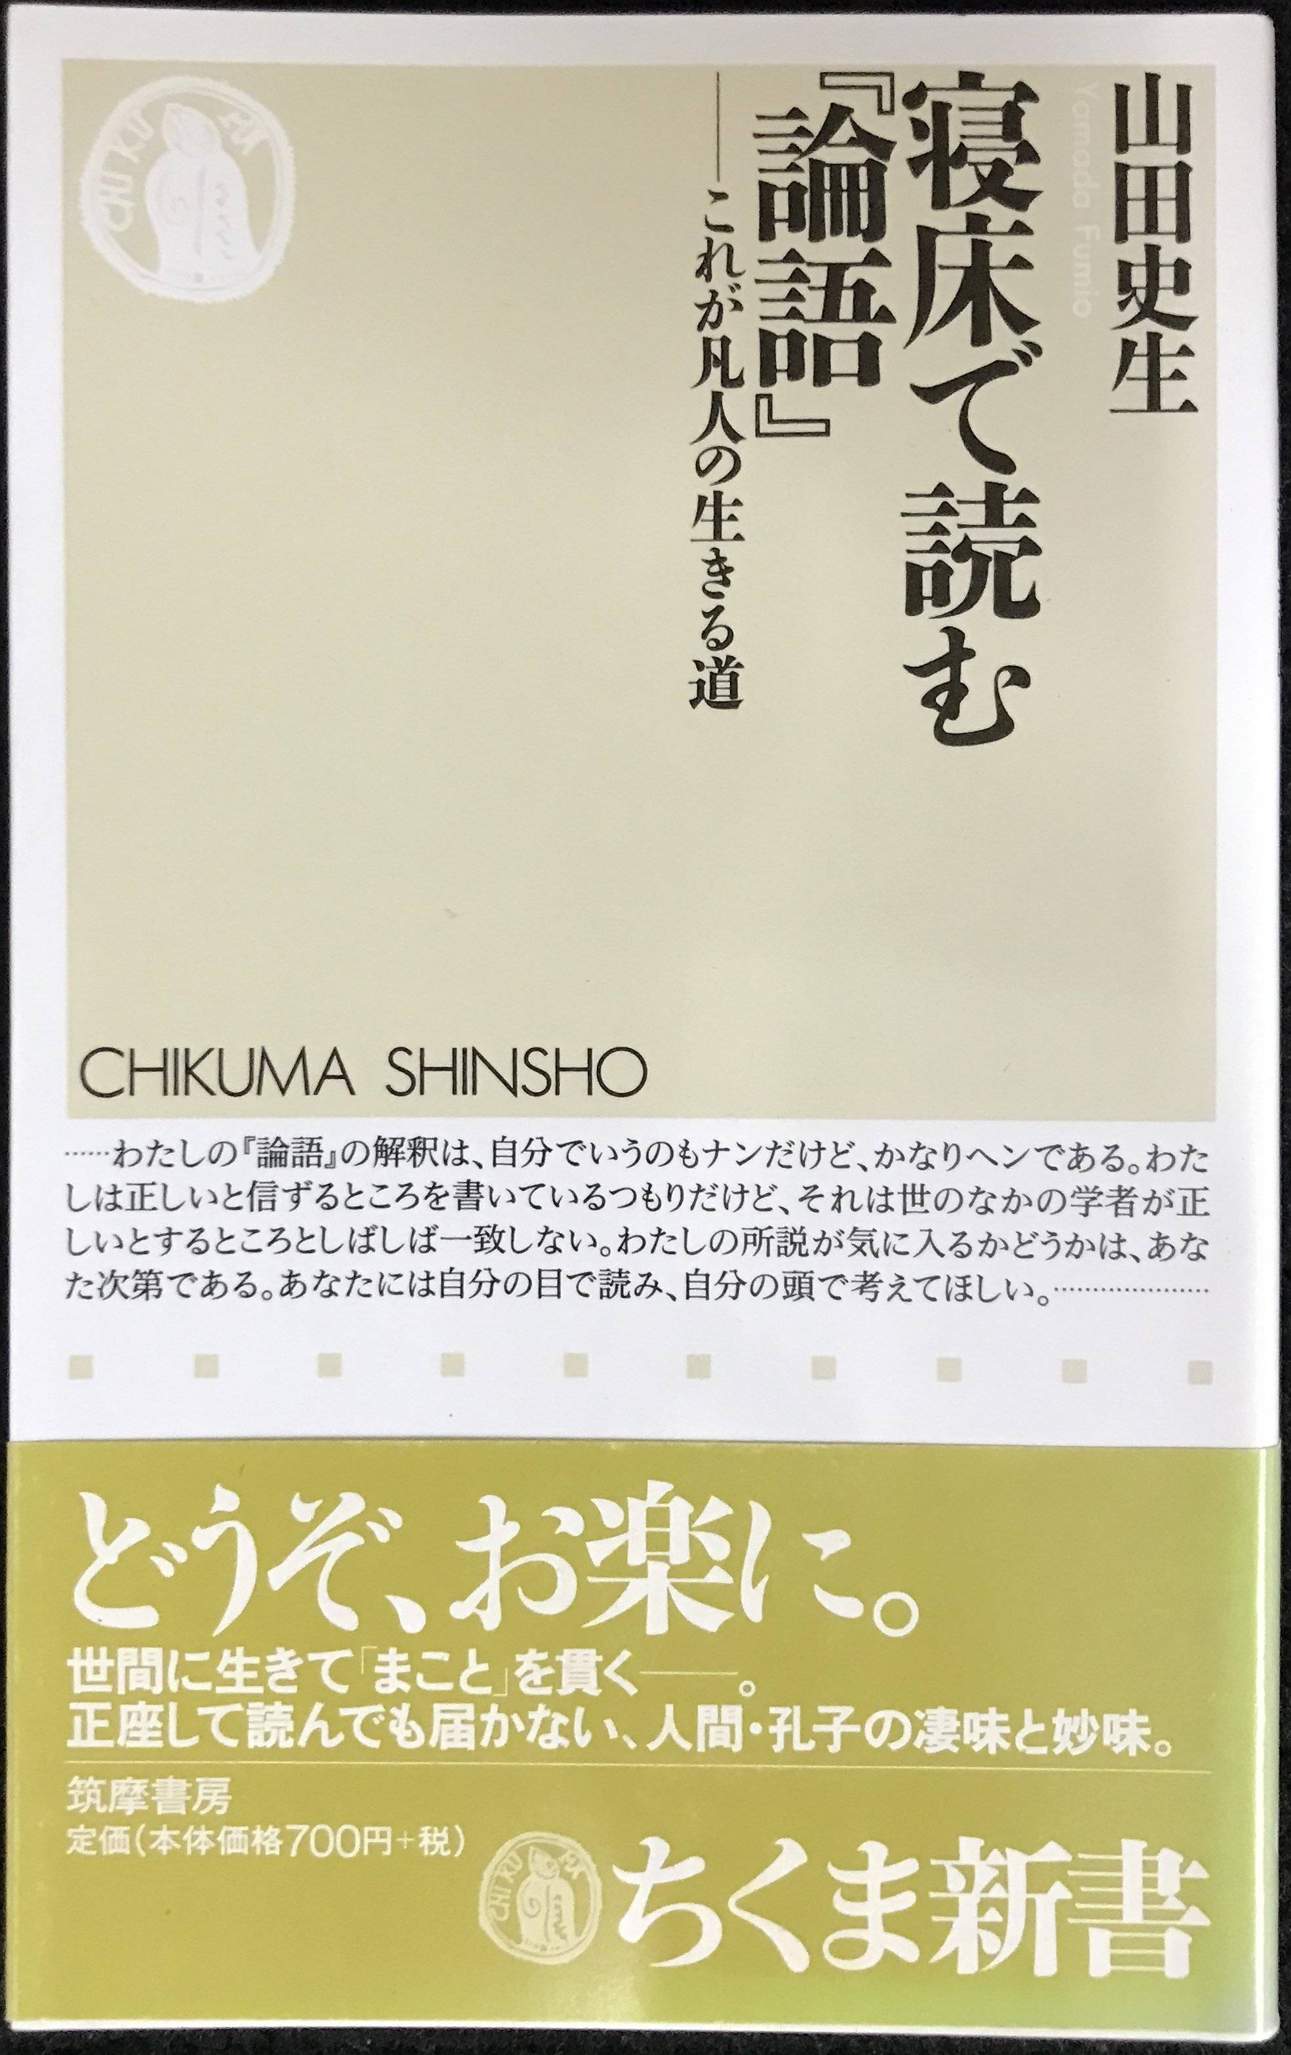 山田史生
Yamada Fumio
寝床で読む
『論語』
――これが凡人の生きる道
CHIKUMA
CHIKUMA SHINSHO
……わたしの『論語』の解釈は、自分でいうのもナンだけど、かなりヘンである。わた
しは正しいと信ずるところを書いているつもりだけど、それは世のなかの学者が正
しいとするところとしばしば一致しない。わたしの所説が気に入るかどうかは、あな
た次第である。あなたには自分の目で読み、自分の頭で考えてほしい。…………………
どうぞ、お楽に。
世間に生きて「まこと」を貫く――。
正座して読んでも届かない、人間・孔子の凄味と妙味。
筑摩書房
定価(本体価格700円+税)
CHIKUMA
ちくま新書